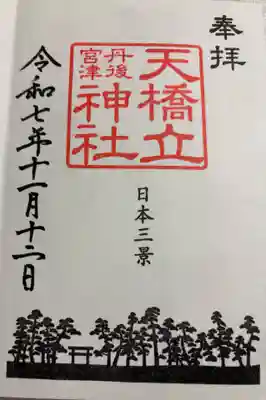 奉拝
天橋立
丹後
宮津
神社
日本三景
令和七年十一月十二日